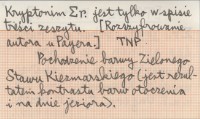 Kryptonim Σr. jest tylko w spisie
treści zeszytu. [Rozszyfrowanie
autora u Payera.] TNP.
Pochodzenie barwy Zielonego
Stawu Kieżmarskiego (jest rezul-
tatem kontrastu barw otoczenia
i na dnie jeziora).